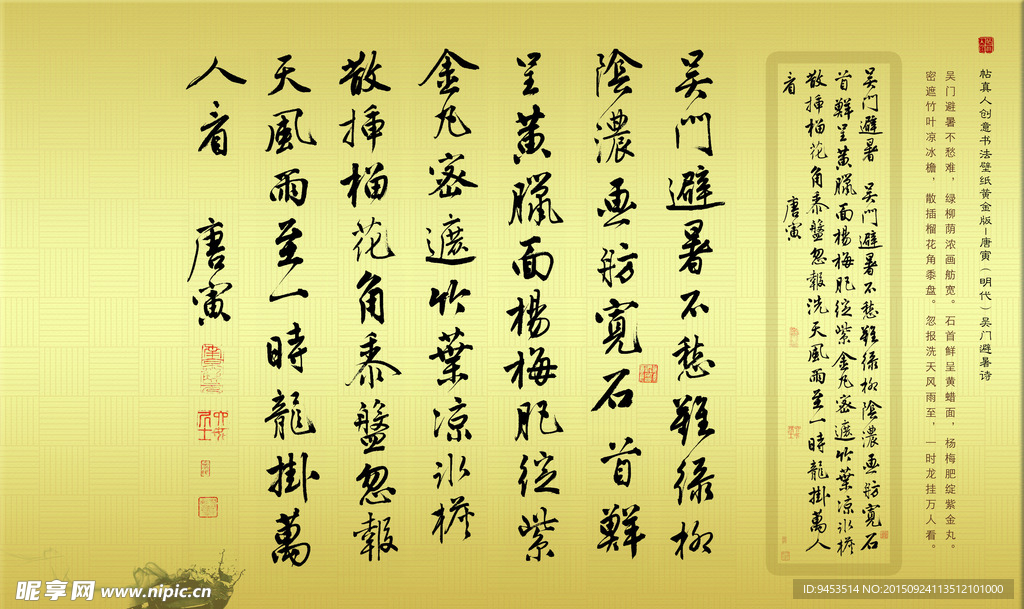 帖真人创意书法壁纸黄金版—唐寅（明代）吴门避暑诗
吴门避暑不愁难，绿柳荫浓画舫宽。石首鲜呈黄蜡面，杨梅肥绽紫金丸。
密遮竹叶凉冰檐，散插榴花角黍盘。忽报洗天风雨至，一时龙挂万人看。
吴門避暑 吴門避暑不愁難綠柳陰濃画舫寬石
首鮮呈黄臘面楊梅肥綻紫金丸密遮竹葉凉冰檐
散插榴花角黍盤忽報洗天風雨至一時龍掛萬人
看 唐寅
吴門避暑不愁難綠柳
陰濃画舫寬石首鮮
呈黄臘面楊梅肥綻紫
金丸密遮竹葉凉冰檐
散插榴花角黍盤忽報
天風雨至一時龍掛萬
人看 唐寅
昵享网 www.nipic.cn
ID:9453514 NO:20150924113512101000